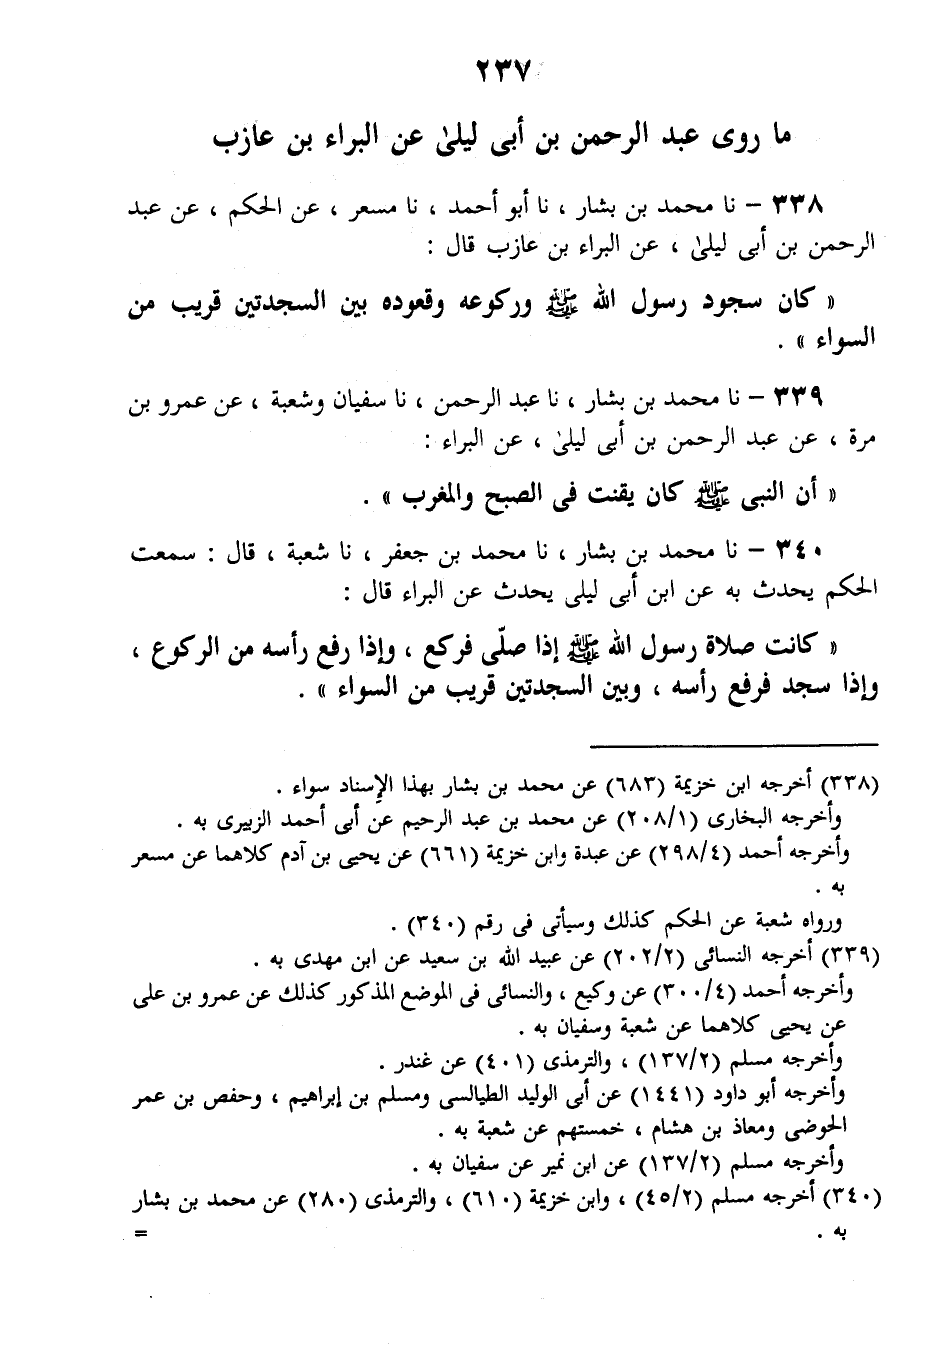 ٢٣٧
ما روى عبد الرحمن بن أبى ليلىٰ عن البراء بن عازب
٣٣٨ – نا محمد بن بشار ، نا أبو أحمد ، نا مسعر ، عن الحكم ، عن عبد
الرحمن بن أبى ليلىٰ ، عن البراء بن عازب قال :
« كان سجود رسول الله ﷺ وركوعه وقعوده بين السجدتين قريب من
السواء » .
٣٣٩ – نا محمد بن بشار ، نا عبد الرحمن ، نا سفيان وشعبة ، عن عمرو بن
مرة ، عن عبد الرحمن بن أبى ليلىٰ ، عن البراء :
« أن النبى ﷺ كان يقنت فى الصبح والمغرب » .
٣٤٠ – نا محمد بن بشار ، نا محمد بن جعفر ، نا شعبة ، قال : سمعت
الحكم يحدث به عن ابن أبى ليلى يحدث عن البراء قال :
« كانت صلاة رسول الله ﷺ إذا صلّى فركع ، وإذا رفع رأسه من الركوع ،
وإذا سجد فرفع رأسه ، وبين السجدتين قريب من السواء » .
(٣٣٨) أخرجه ابن خزيمة (٦٨٣) عن محمد بن بشار بهذا الإسناد سواء .
وأخرجه البخارى (٢٠٨/١) عن محمد بن عبد الرحيم عن أبى أحمد الزبيرى به .
وأخرجه أحمد (٢٩٨/٤) عن عبدة وابن خزيمة (٦٦١) عن يحيى بن آدم كلاهما عن مسعر
به .
ورواه شعبة عن الحكم كذلك وسيأتى فى رقم (٣٤٠) .
(٣٣٩) أخرجه النسائى (٢٠٢/٢) عن عبيد الله بن سعيد عن ابن مهدى به .
وأخرجه أحمد (٣٠٠/٤) عن وكيع ، والنسائى فى الموضع المذكور كذلك عن عمرو بن على
عن يحيى كلاهما عن شعبة وسفيان به .
وأخرجه مسلم (١٣٧/٢) ، والترمذى (٤٠١) عن غندر .
وأخرجه أبو داود (١٤٤١) عن أبى الوليد الطيالسى ومسلم بن إبراهيم ، وحفص بن عمر
الحوضى ومعاذ بن هشام ، خمستهم عن شعبة به .
وأخرجه مسلم (١٣٧/٢) عن ابن نمير عن سفيان به .
(٣٤٠) أخرجه مسلم (٤٥/٢) ، وابن خزيمة (٦١٠) ، والترمذى (٢٨٠) عن محمد بن بشار
به . =